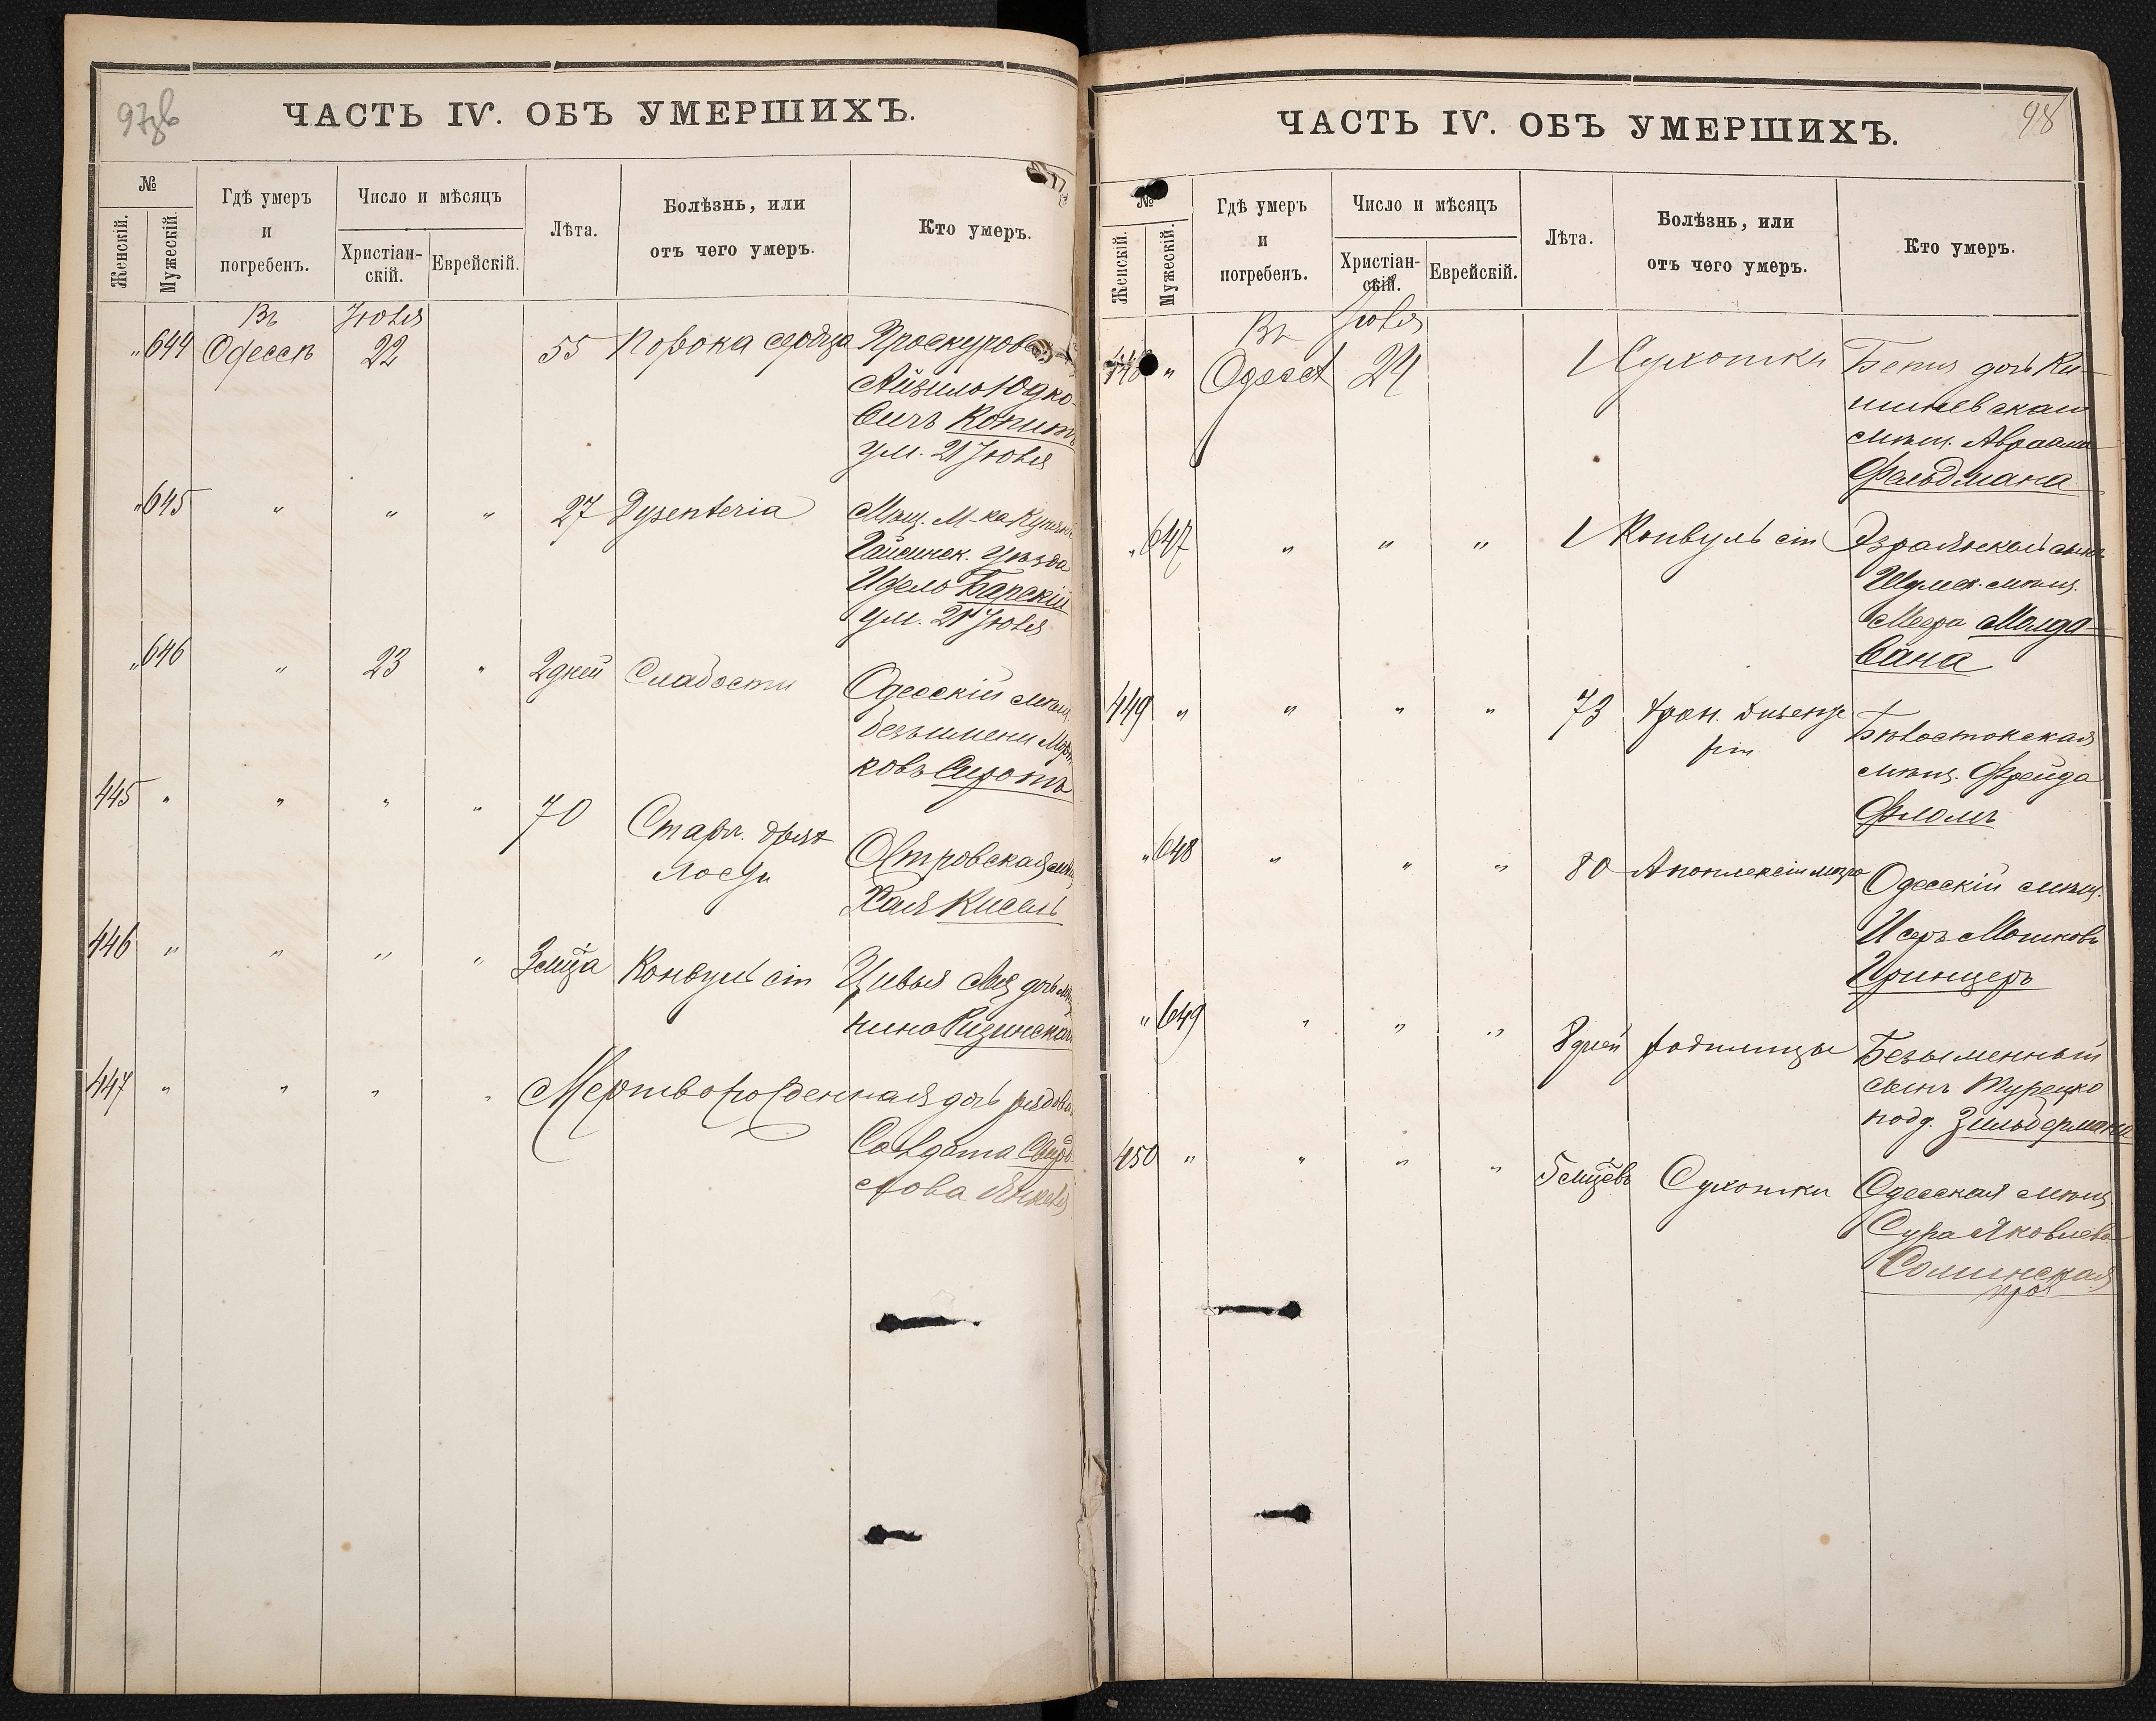 97зв
ЧАСТЬ IV. ОБЪ УМЕРШИХЪ.
№
Женскій.
Мужескій.
Гдѣ умеръ
и
погребенъ.
Число и мѣсяцъ
Христіан-
скій.
Еврейскій.
Лѣта.
Болѣзнь, или
отъ чего умеръ.
Кто умеръ.
Въ Іюля
" 644 Одессѣ 22 55 Порока сердца Проскуров
Айзилъ Юдко-
вичъ Копит
ум. 21 Іюля
" 645 " " " 27 Dysenteria Мѣщ. М-ка
Гайсинск. уѣзда
Идель Барскій
ум. 21 Іюля
" 646 " 23 " 2 дней Слабости Одесскій мѣщ.
безъ имени
ковъ Сиротъ
445 " " " " 70 Старч. дрях
лости
Островская мѣщ
Хая Кисель
446 " " " " 3 мца Конвульсіи Цивья Лея дочь мѣщ
Ризинская
447 " " " " Мертворожденная дочь рядова
Солдата
98
ЧАСТЬ IV. ОБЪ УМЕРШИХЪ.
№
Женскій.
Мужескій.
Гдѣ умеръ
и
погребенъ.
Число и мѣсяцъ
Христіан-
скій.
Еврейскій.
Лѣта.
Болѣзнь, или
отъ чего умеръ.
Кто умеръ.
Въ Іюля
448 " Одессѣ 24 1 Сухотки Бетя дочь Ки-
шиневскаго
мѣщ. Авраама
Фельдмана
" 647 " " " 1 Конвульсіи сынъ
мѣщ.
Меера Молда-
вана
449 " " " " 73 Хрон. дизенте
ріи
Бѣлостокская
мѣщ. Фрейда
Фломъ
" 648 " " " 80 Апоплексіи мозга Одесскій мѣщ.
Исеръ Мошковъ
Принцеръ
" 649 " " " 8 дней родимица Безыменный
сынъ Турецко
подд. Зильбермана
450 " " " " 5 мцевъ Сухотки Одесская мѣщ.
Сура Яковлева
Солинская